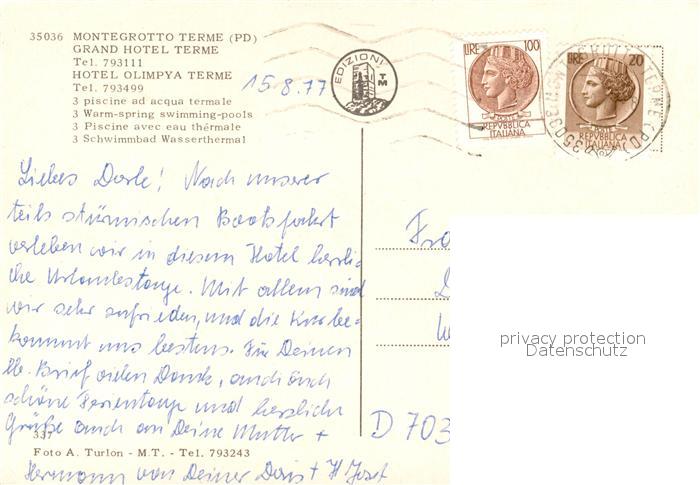 35036 MONTEGROTTO TERME (PD)
GRAND HOTEL TERME
Tel. 793111
HOTEL OLIMPYA TERME
Tel. 793499
3 piscine ad acqua termale
3 Warm-spring swimming-pools
3 Piscine avec eau thérmale
3 Schwimmbad Wasserthermal
15.8.77
EDIZIONI
TM
LIRE 100
POSTE
REPVBBLICA
ITALIANA
LIRE 20
POSTE
REPVBBLICA
ITALIANA
Liebes Dorle! Nach unserer
teils stürmischen Bootsfahrt
verleben wir in diesem Hotel herrli-
che Urlaubstage. Mit allem sind
wir sehr zufrieden, und die Kur be-
kommt uns bestens. Für Deinen
lb. Brief vielen Dank, auch Euch
schöne Ferientage und herzliche
Grüße auch an Deine Mutter +
Hermann von Deiner Doris + H Josef
337
Foto A. Turlon - M.T. - Tel. 793243
Fra
D 703
privacy protection
Datenschutz